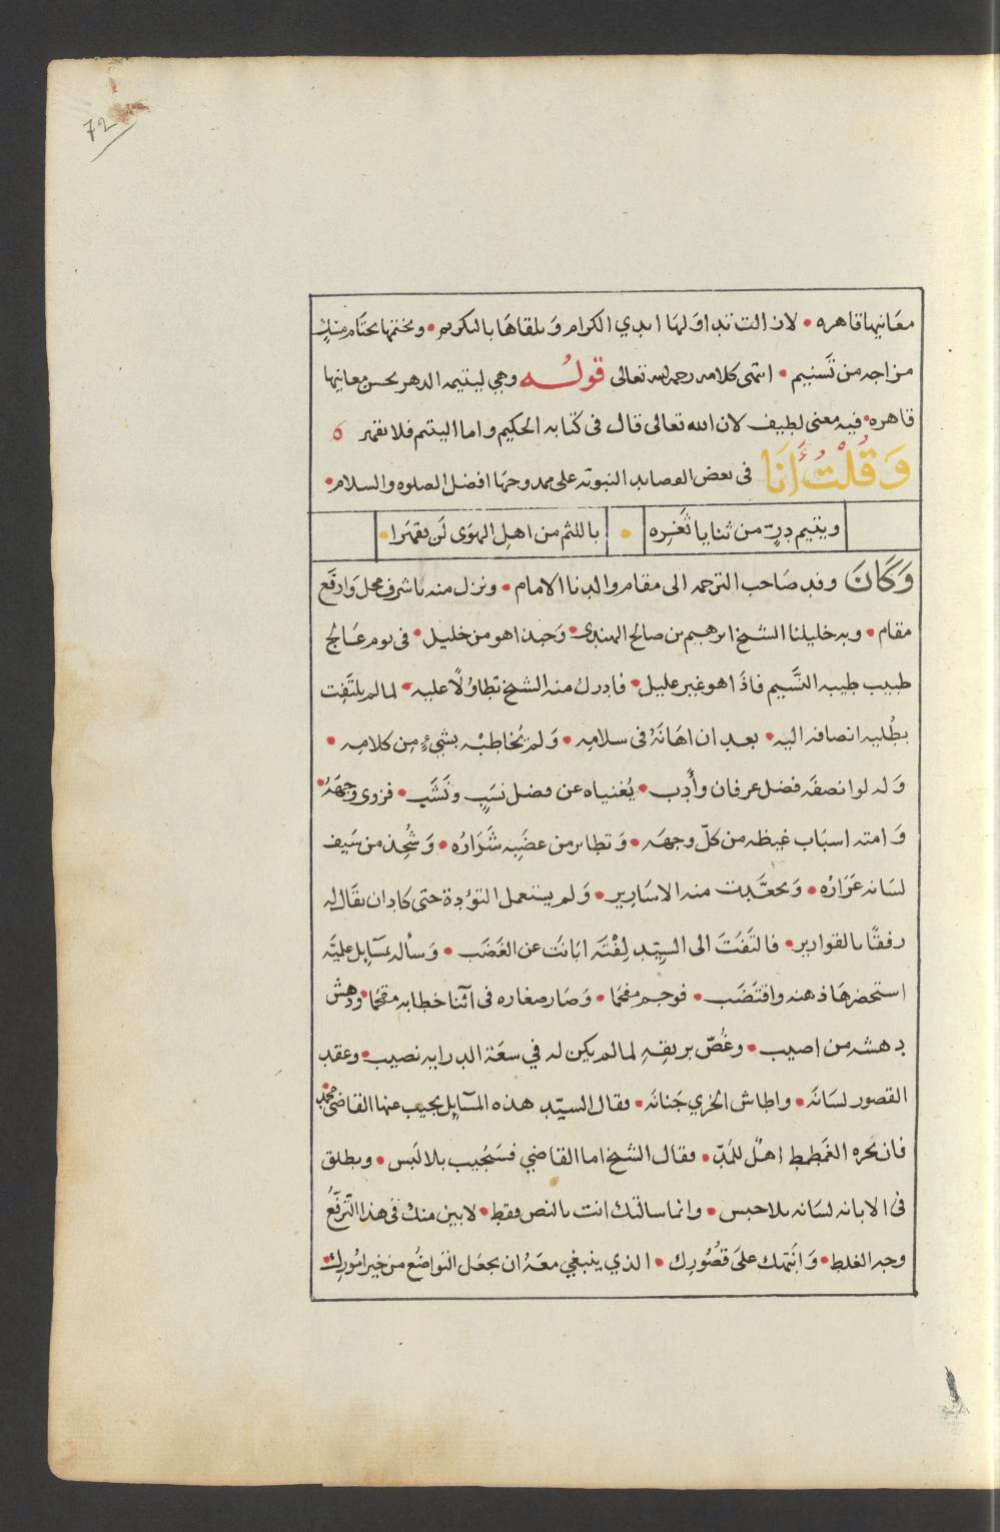 72
معانيها قاهره • لازالت تداولها ايدي الكرام وتلقاها بالتكريم • وتختمها بختام مسك
مزاجه من تسنيم • انتهى كلامه رحمه الله تعالى قوله وهي ليتيمه الدهر بحسن معانيها
قاهره • فيه معنى لطيف لان الله تعالى قال في كتابه الحكيم واما اليتيم فلا تقهر
وَقُلْتُ أَنَا في بعض القصايد النبويه على ممدوحها افضل الصلوه والسلام •
ويتيم درٍّ من ثنايا ثَغرِه • باللثم من اهلِ الهوَى لَن يقهَرا •
وَكَانَ وفد صَاحب الترجمه الى مقام والدنا الامام • ونزل منه باشرف محل وَارفَع
مقام • وبه خليلنا الشيخ ابرهيم بن صالح الهندي • وَحبذا هو من خليل • في يوم عَالج
طبيب طيبه النَّسيم فاذَا هو غير عليل • فادرك منه الشيخ تطاوُلًا عليه • لما لم يلتَفِت
بطُليه انصافه اليه • بعد ان اهَانَهُ في سلامِه • وَلم يُخاطبْه بشيءٍ من كلامِه •
وَله لو انصفَه فضل عرفان وأَدب • يُغنياه عن فضل نسَبٍ ونَشَب • فزوى وجهَهُ •
وَامته اسبَاب غيظه من كلّ وجهَه • وَتطاير من غضَبِه شَرَارُه • وَشُحِذ من سَيف
لسَانه غرَارُه • وَتجعَّدت منه الاسَارِير • وَلم يستعمل التوُدة حتى كاد ان يقَال له
رفقًا بالقوارير • فالتَفَتَ الى السيّد لِفْتَه ابَانَت عن الغَضَب • وَسأله بمسَايل عليَّه
استحضرهَا ذهنه واقتَضَب • فوجم مفحمًا • وَصَار صغاره في اثنا خطابه مقحمًا • ودهش
دهشه من اصيب • وغُصّ بريقِه لما لم يكن له في سعَة الدرايه نصيب • وعقد
القصور لسَانَه • واطاش الخزي جَنانَه • فقال السيّد هذه المسَايل يجيب عنها القاضي محمد
فان بحره الغَطمطم اهلٌ للمدّ • فقال الشيخ اما القاضي فسَيُجيب بلا لَبس • ويطلق
في الابانه لسَانه بلا حبس • وانما سالتك انت بالنص فقط • لابين منك في هذا التّرفّع
وجه الغلط • وَانَبّهك علَى قصُورِك • الذي ينبغي معَهُ ان تجعَل التواضُع من خير امُورِك •